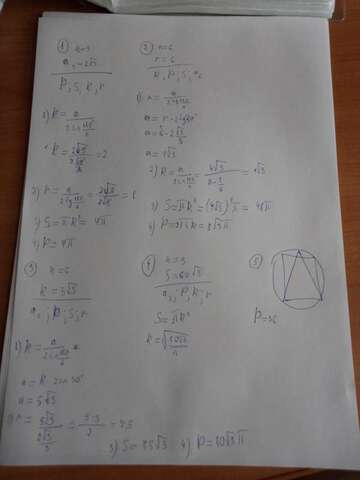 1
n=3
a₃=2√3
P, S, R, r
1) R = a / 2 sin 180°/n
R = 2√3 / 2√3/2 = 2
2) r = a / 2 tg 180°/n = 2√3 / 2√3 = 1
3) S = πR² = 4π
4) P = 4π
2
n=6
r=6
R, P, S, a₆
1) r = a / 2 tg 180°/n
a = r · 2 tg 30°
a = 6 · 2√3/3
a = 4√3
2) R = a / 2 sin 180°/n = 4√3
3) S = πR² = (4√3)²π = 48π
4) P = 2πR = 8√3π
3
n=6
R = 5√3
a₆, P, S, r
1) R = a / 2 sin 180°/n
a = R · 2 sin 30°
a = 5√3
2) r = 5√3 / 2√3/3 = 5·3 / 2 = 7,5
3) S = 75√3
4) P = 10√3π
4
n=3
a₃, P, R, r
S = πR²
5
P=36